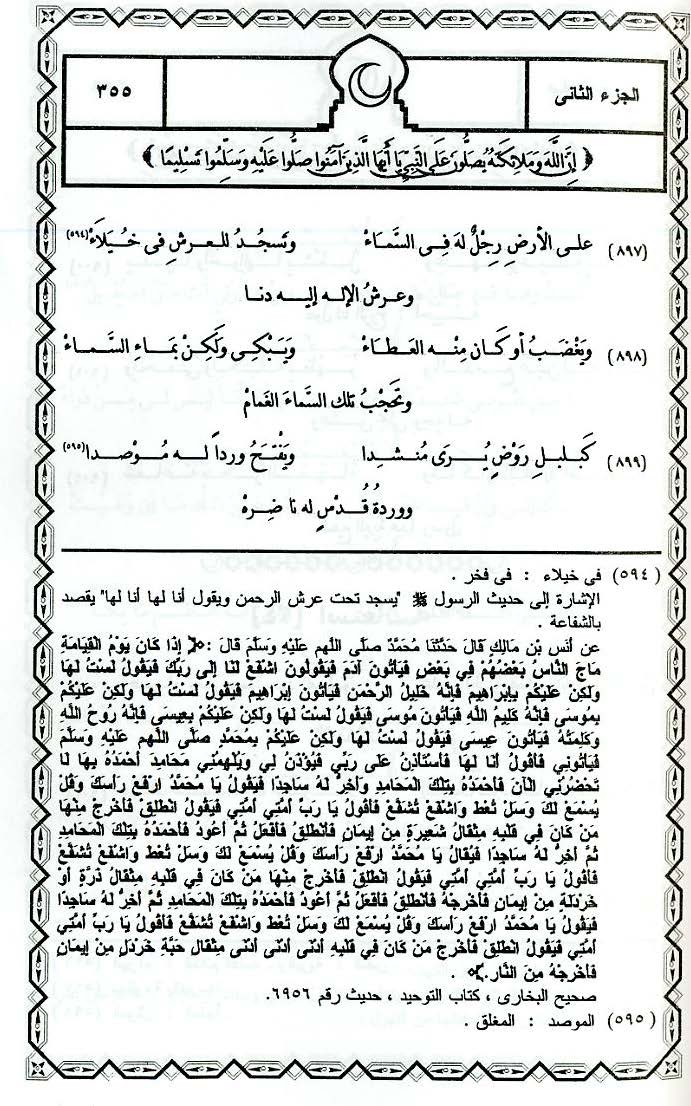 الجزء الثانى
٣٥٥
﴿ إِنَّ اللَّهَ وَمَلائِكَتَهُ يُصَلُّونَ عَلَى النَّبِيِّ يَا أَيُّهَا الَّذِينَ آمَنُوا صَلُّوا عَلَيْهِ وَسَلِّمُوا تَسْلِيمًا ﴾
(٨٩٧) على الأرضِ رِجْلٌ له فِى السَّمَاءْ وتَسجُدُ للعرشِ فِى خُيَلاَءْ(٥٩٤)
وعرشُ الإله إليه دنا
(٨٩٨) ويَغْضَبُ أو كان مِنْه العطاءْ ويَبْكِى ولكِنْ بمَاءِ السَّماءْ
وتَحجْبُ تلك السَّماءَ الغمامْ
(٨٩٩) كبلبلِ رَوْضٍ يُرَى مُنشدِا ويَفْتَحُ ورداً له مُوْصدا(٥٩٥)
ووردةُ قُدْسٍ له ناضِرهْ
(٥٩٤) فى خيلاء : فى فخر .
الإشارة إلى حديث الرسول ﷺ "يسجد تحت عرش الرحمن ويقول أنا لها أنا لها" يقصد
بالشفاعة .
عن أنس بْن مَالِكٍ قَالَ حَدَّثَنَا مُحَمَّدٌ صَلَّى اللهم عَلَيْهِ وَسَلَّمَ قَالَ : ﴿ إِذَا كَانَ يَوْمُ الْقِيَامَةِ
مَاجَ النَّاسُ بَعْضُهُمْ فِي بَعْضٍ فَيَأْتُونَ آدَمَ فَيَقُولُونَ اشْفَعْ لَنَا إِلَى رَبِّكَ فَيَقُولُ لَسْتُ لَهَا
وَلَكِنْ عَلَيْكُمْ بِإِبْرَاهِيمَ فَإِنَّهُ خَلِيلُ الرَّحْمَنِ فَيَأْتُونَ إِبْرَاهِيمَ فَيَقُولُ لَسْتُ لَهَا وَلَكِنْ عَلَيْكُمْ
بِمُوسَى فَإِنَّهُ كَلِيمُ اللَّهِ فَيَأْتُونَ مُوسَى فَيَقُولُ لَسْتُ لَهَا وَلَكِنْ عَلَيْكُمْ بِعِيسَى فَإِنَّهُ رُوحُ اللَّهِ
وَكَلِمَتُهُ فَيَأْتُونَ عِيسَى فَيَقُولُ لَسْتُ لَهَا وَلَكِنْ عَلَيْكُمْ بِمُحَمَّدٍ صَلَّى اللهم عَلَيْهِ وَسَلَّمَ
فَيَأْتُونِي فَأَقُولُ أَنَا لَهَا فَأَسْتَأْذِنُ عَلَى رَبِّي فَيُؤْذَنُ لِي وَيُلْهِمُنِي مَحَامِدَ أَحْمَدُهُ بِهَا لَا
تَحْضُرُنِي الْآنَ فَأَحْمَدُهُ بِتِلْكَ الْمَحَامِدِ وَأَخِرُّ لَهُ سَاجِدًا فَيَقُولُ يَا مُحَمَّدُ ارْفَعْ رَأْسَكَ وَقُلْ
يُسْمَعْ لَكَ وَسَلْ تُعْطَ وَاشْفَعْ تُشَفَّعْ فَأَقُولُ يَا رَبِّ أُمَّتِي أُمَّتِي فَيَقُولُ انْطَلِقْ فَأَخْرِجْ مِنْهَا
مَنْ كَانَ فِي قَلْبِهِ مِثْقَالُ شَعِيرَةٍ مِنْ إِيمَانٍ فَأَنْطَلِقُ فَأَفْعَلُ ثُمَّ أَعُودُ فَأَحْمَدُهُ بِتِلْكَ الْمَحَامِدِ
ثُمَّ أَخِرُّ لَهُ سَاجِدًا فَيُقَالُ يَا مُحَمَّدُ ارْفَعْ رَأْسَكَ وَقُلْ يُسْمَعْ لَكَ وَسَلْ تُعْطَ وَاشْفَعْ تُشَفَّعْ
فَأَقُولُ يَا رَبِّ أُمَّتِي أُمَّتِي فَيَقُولُ انْطَلِقْ فَأَخْرِجْ مِنْهَا مَنْ كَانَ فِي قَلْبِهِ مِثْقَالُ ذَرَّةٍ أَوْ
خَرْدَلَةٍ مِنْ إِيمَانٍ فَأَخْرِجْهُ فَأَنْطَلِقُ فَأَفْعَلُ ثُمَّ أَعُودُ فَأَحْمَدُهُ بِتِلْكَ الْمَحَامِدِ ثُمَّ أَخِرُّ لَهُ سَاجِدًا
فَيَقُولُ يَا مُحَمَّدُ ارْفَعْ رَأْسَكَ وَقُلْ يُسْمَعْ لَكَ وَسَلْ تُعْطَ وَاشْفَعْ تُشَفَّعْ فَأَقُولُ يَا رَبِّ أُمَّتِي
أُمَّتِي فَيَقُولُ انْطَلِقْ فَأَخْرِجْ مَنْ كَانَ فِي قَلْبِهِ أَدْنَى أَدْنَى أَدْنَى مِثْقَالِ حَبَّةِ خَرْدَلٍ مِنْ إِيمَانٍ
فَأَخْرِجْهُ مِنَ النَّارِ ﴾ .
صحيح البخارى ، كتاب التوحيد ، حديث رقم ٦٩٥٦.
(٥٩٥) الموصد : المغلق .